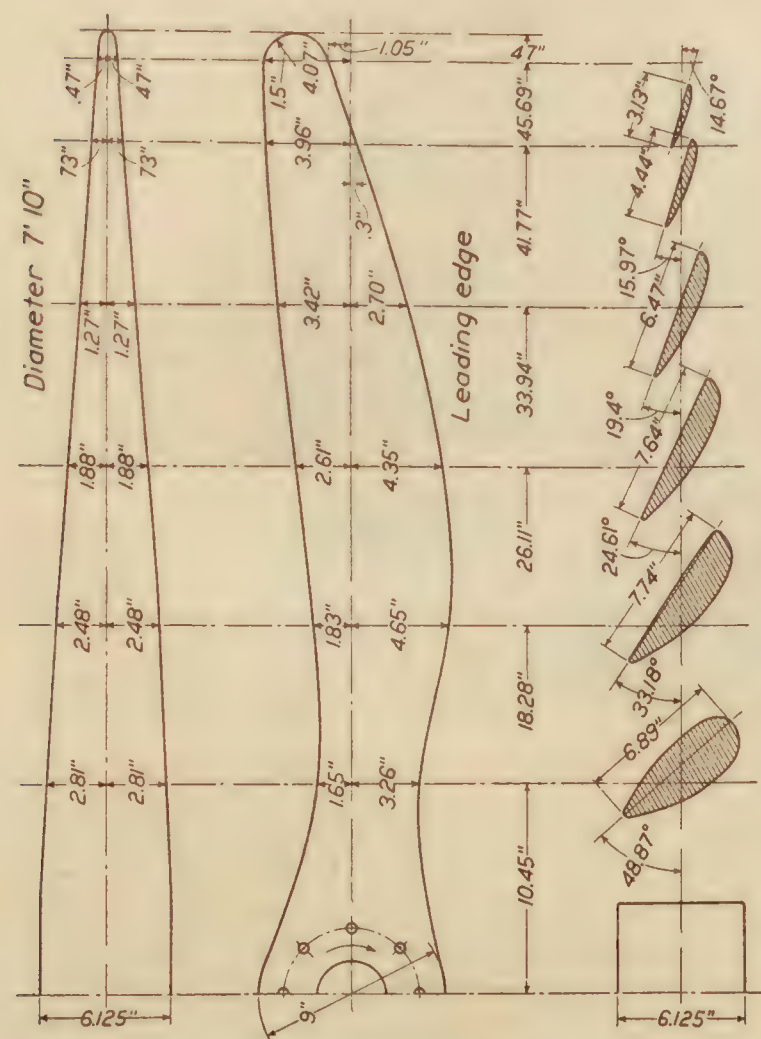 Diameter 7' 10"
.47"
47"
73"
73"
1.27"
1.27"
1.88"
1.88"
2.48"
2.48"
2.81"
2.81"
6.125"
1.05"
1.5"
4.07"
3.96"
.3"
3.42"
2.70"
2.61"
4.35"
1.83"
4.65"
1.65"
3.26"
9"
Leading edge
47"
45.69"
41.77"
33.94"
26.11"
18.28"
10.45"
14.67°
3.13"
4.44"
15.97°
6.47"
19.4°
7.64"
24.61°
7.74"
33.18°
6.89"
48.87°
6.125"